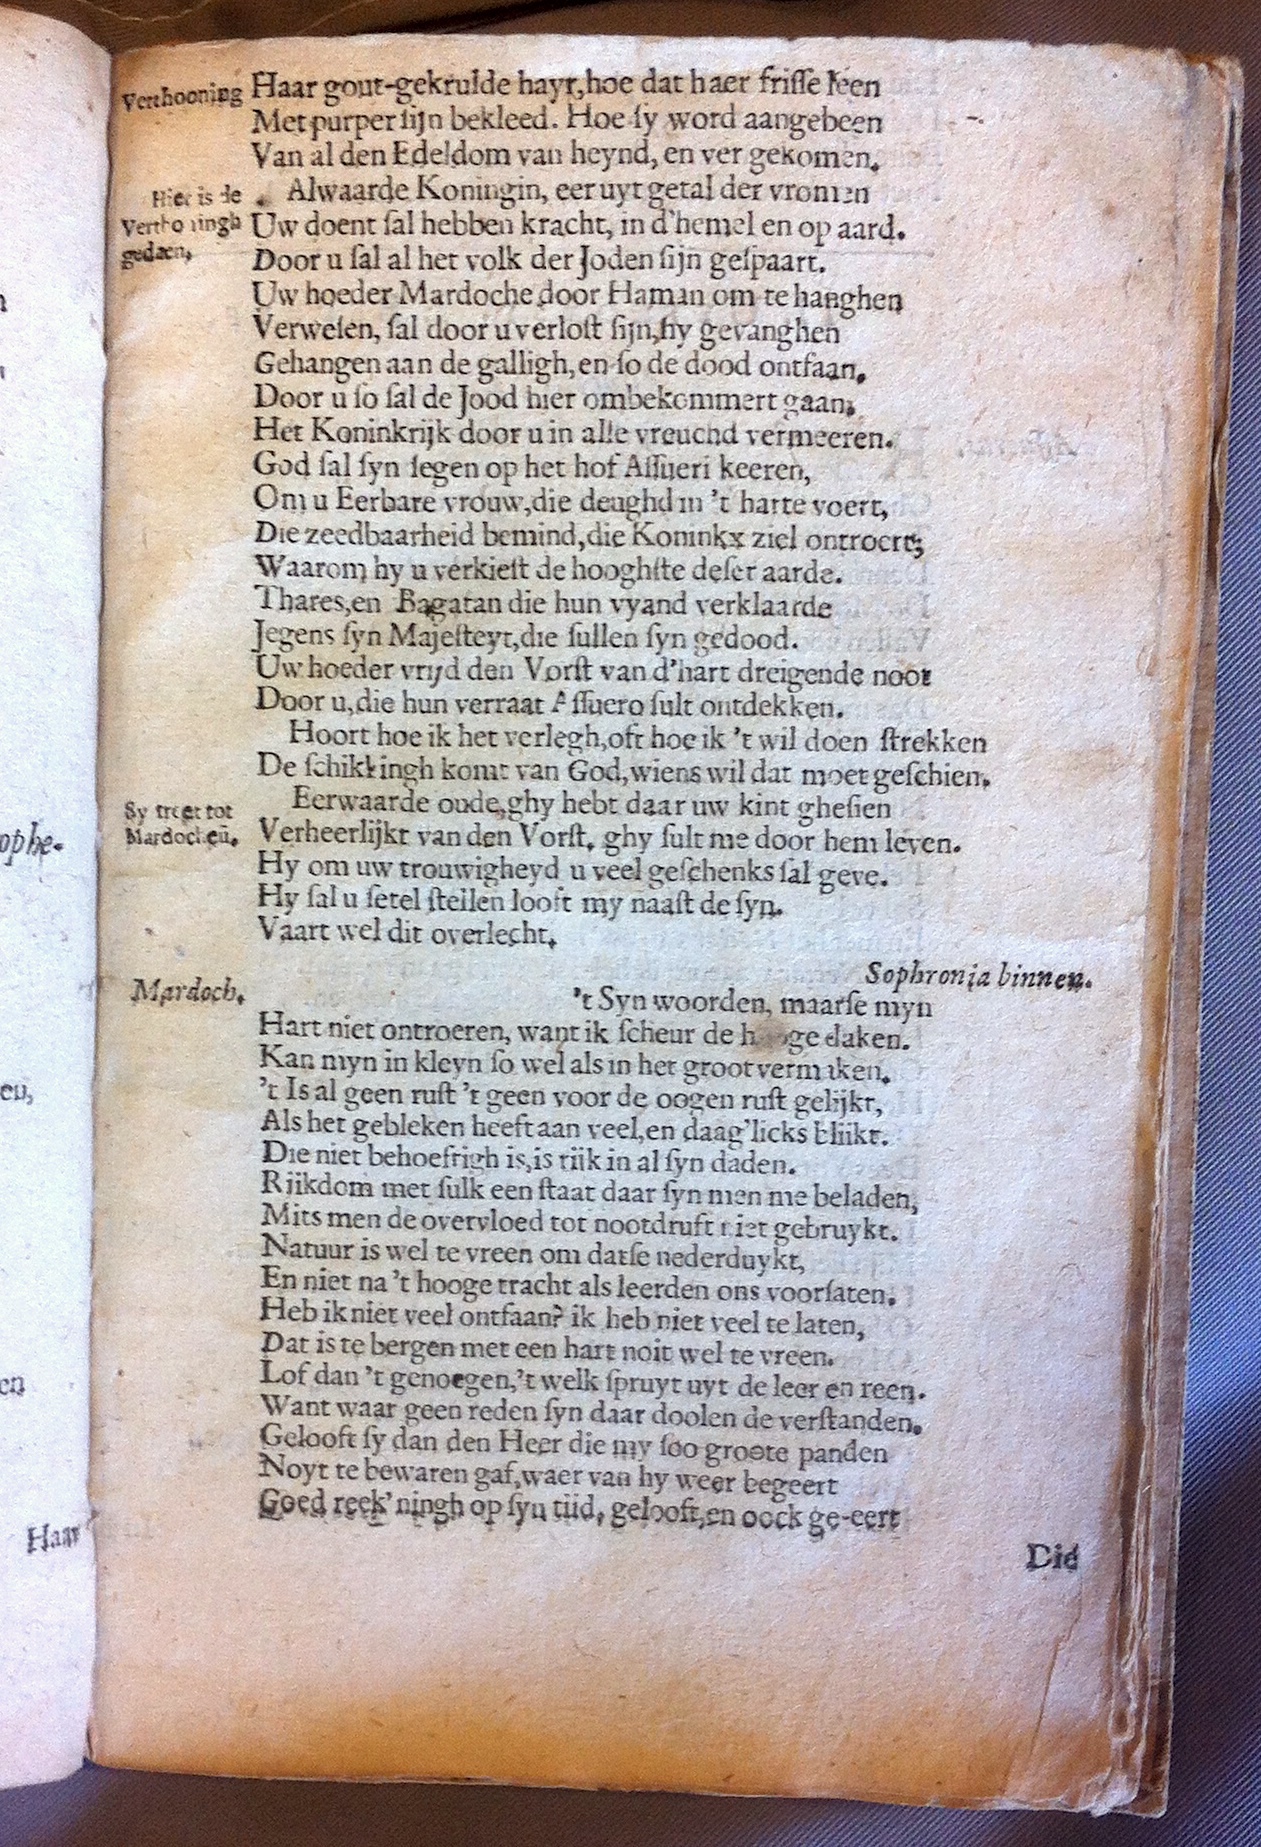 Verthooning Haar gout-gekrulde hayr, hoe dat haer frisse leen
Met purper sijn bekleed. Hoe sy word aangebeen
Van al den Edeldom van heynd, en ver gekomen.
Hier is de Alwaarde Koningin, eer uyt getal der vromen
Verthooningh Uw doent sal hebben kracht, in d'hemel en op aard.
gedaen. Door u sal al het volk der Joden sijn gespaart.
Uw hoeder Mardoche door Haman om te hanghen
Verwesen, sal door u verlost sijn, hy gevanghen
Gehangen aan de galligh, en so de dood ontfaan.
Door u so sal de Jood hier ombekommert gaan.
Het Koninkrijk door u in alle vreuchd vermeeren.
God sal syn segen op het hof Assueri keeren,
Om u Eerbare vrouw, die deughd in 't harte voert,
Die zeedbaarheid bemind, die Koninkx ziel ontroert;
Waarom hy u verkiest de hooghste deser aarde.
Thares, en Bagatan die hun vyand verklaarde
Jegens syn Majesteyt, die sullen syn gedood.
Uw hoeder vrijd den Vorst van d'hart dreigende noot
Door u, die hun verraat Assuero sult ontdekken.
Hoort hoe ik het verlegh, oft hoe ik 't wil doen strekken
De schikkingh komt van God, wiens wil dat moet geschien.
Sy treet tot Eerwaarde oude, ghy hebt daar uw kint ghesien
Mardocheü. Verheerlijkt van den Vorst, ghy sult me door hem leven.
Hy om uw trouwigheyd u veel geschenks sal geve.
Hy sal u setel stellen looft my naast de syn.
Vaart wel dit overlecht.
Sophronia binnen.
Mardoch. 't Syn woorden, maar se myn
Hart niet ontroeren, want ik scheur de hooge daken.
Kan myn in kleyn so wel als in het groot vermaken.
't Is al geen rust 't geen voor de oogen rust gelijkt,
Als het gebleken heeft aan veel, en daag'licks blijkt.
Die niet behoefrigh is, is rijk in al syn daden.
Rijkdom met sulk een staat daar syn men me beladen,
Mits men de overvloed tot nootdruft niet gebruykt.
Natuur is wel te vreen om datse nederduykt,
En niet na 't hooge tracht als leerden ons voorsaten.
Heb ik niet veel ontfaan? ik heb niet veel te laten,
Dat is te bergen met een hart noit wel te vreen.
Lof dan 't genoegen, 't welk spruyt uyt de leer en reen.
Want waar geen reden syn daar doolen de verstanden.
Gelooft sy dan den Heer die my soo groote panden
Noyt te bewaren gaf, waer van hy weer begeert
Goed reek'ningh op syn tijd, gelooft, en oock ge-eert
Did
ophe-
en,
en
Haar